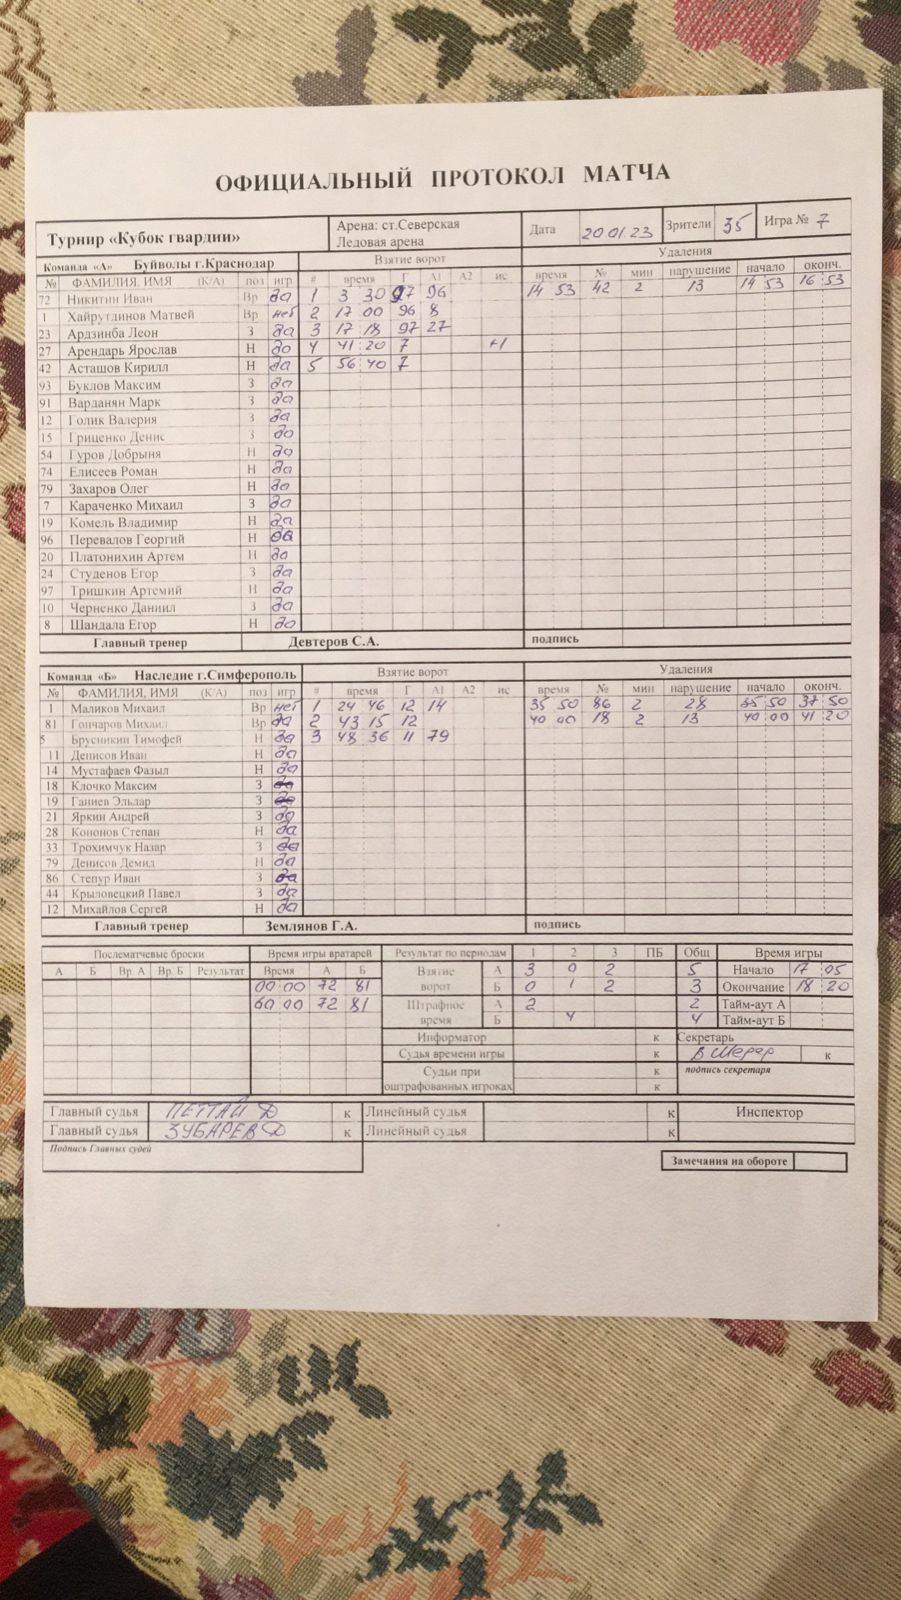 ОФИЦИАЛЬНЫЙ ПРОТОКОЛ МАТЧА
Турнир «Кубок гвардии» Арена: ст.Северская Ледовая арена Дата 20 01.23 Зрители 35 Игра № 7
Команда «А» Буйволы г.Краснодар Взятие ворот Удаления
№ ФАМИЛИЯ, ИМЯ (К/А) поз игр # время Г А1 А2 ис время № мин нарушение начало оконч.
72 Никитин Иван Вр да 1 3 30 97 96 14 53 42 2 13 14 53 16 53
1 Хайрутдинов Матвей Вр нет 2 17 00 96 8
23 Ардзинба Леон З да 3 17 18 97 27
27 Арендарь Ярослав Н да 4 41 20 7 +1
42 Асташов Кирилл Н да 5 56 40 7
93 Буклов Максим З да
91 Варданян Марк З да
12 Голик Валерия З да
15 Гриценко Денис З да
54 Гуров Добрыня Н да
74 Елисеев Роман Н да
79 Захаров Олег Н да
7 Караченко Михаил З да
19 Комель Владимир Н да
96 Перевалов Георгий Н да
20 Платонихин Артем Н да
24 Студенов Егор З да
97 Тришкин Артемий Н да
10 Черненко Даниил З да
8 Шандала Егор Н да
Главный тренер Девтеров С.А. подпись
Команда «Б» Наследие г.Симферополь Взятие ворот Удаления
№ ФАМИЛИЯ, ИМЯ (К/А) поз игр # время Г А1 А2 ис время № мин нарушение начало оконч.
1 Маликов Михаил Вр нет 1 24 46 12 14 35 50 86 2 28 35 50 37 50
81 Гончаров Михаил Вр да 2 43 15 12 40 00 18 2 13 40 00 41 20
5 Брусникин Тимофей Н да 3 48 36 11 79
11 Денисов Иван Н да
14 Мустафаев Фазыл Н да
18 Клочко Максим З да
19 Ганиев Эльдар З да
21 Яркин Андрей З да
28 Кононов Степан Н да
33 Трохимчук Назар З да
79 Денисов Демид Н да
86 Степур Иван З да
44 Крыловецкий Павел З да
12 Михайлов Сергей Н да
Главный тренер Землянов Г.А. подпись
Послематчевые броски Время игры вратарей Результат по периодам 1 2 3 ПБ Общ Время игры
А Б Вр. А Вр. Б Результат Время А Б Взятие ворот А 3 0 2 5 Начало 17 05
00 00 72 81 Б 0 1 2 3 Окончание 18 20
60 00 72 81 Штрафное время А 2 2 Тайм-аут А
Б 4 4 Тайм-аут Б
Информатор к Секретарь
Судья времени игры к В Шерер к
Судьи при оштрафованных игроках к к подпись секретаря
Главный судья ПЕТТАЙ Д к Линейный судья к Инспектор
Главный судья ЗУБАРЕВ Д к Линейный судья к
Подпись Главных судей
Замечания на обороте